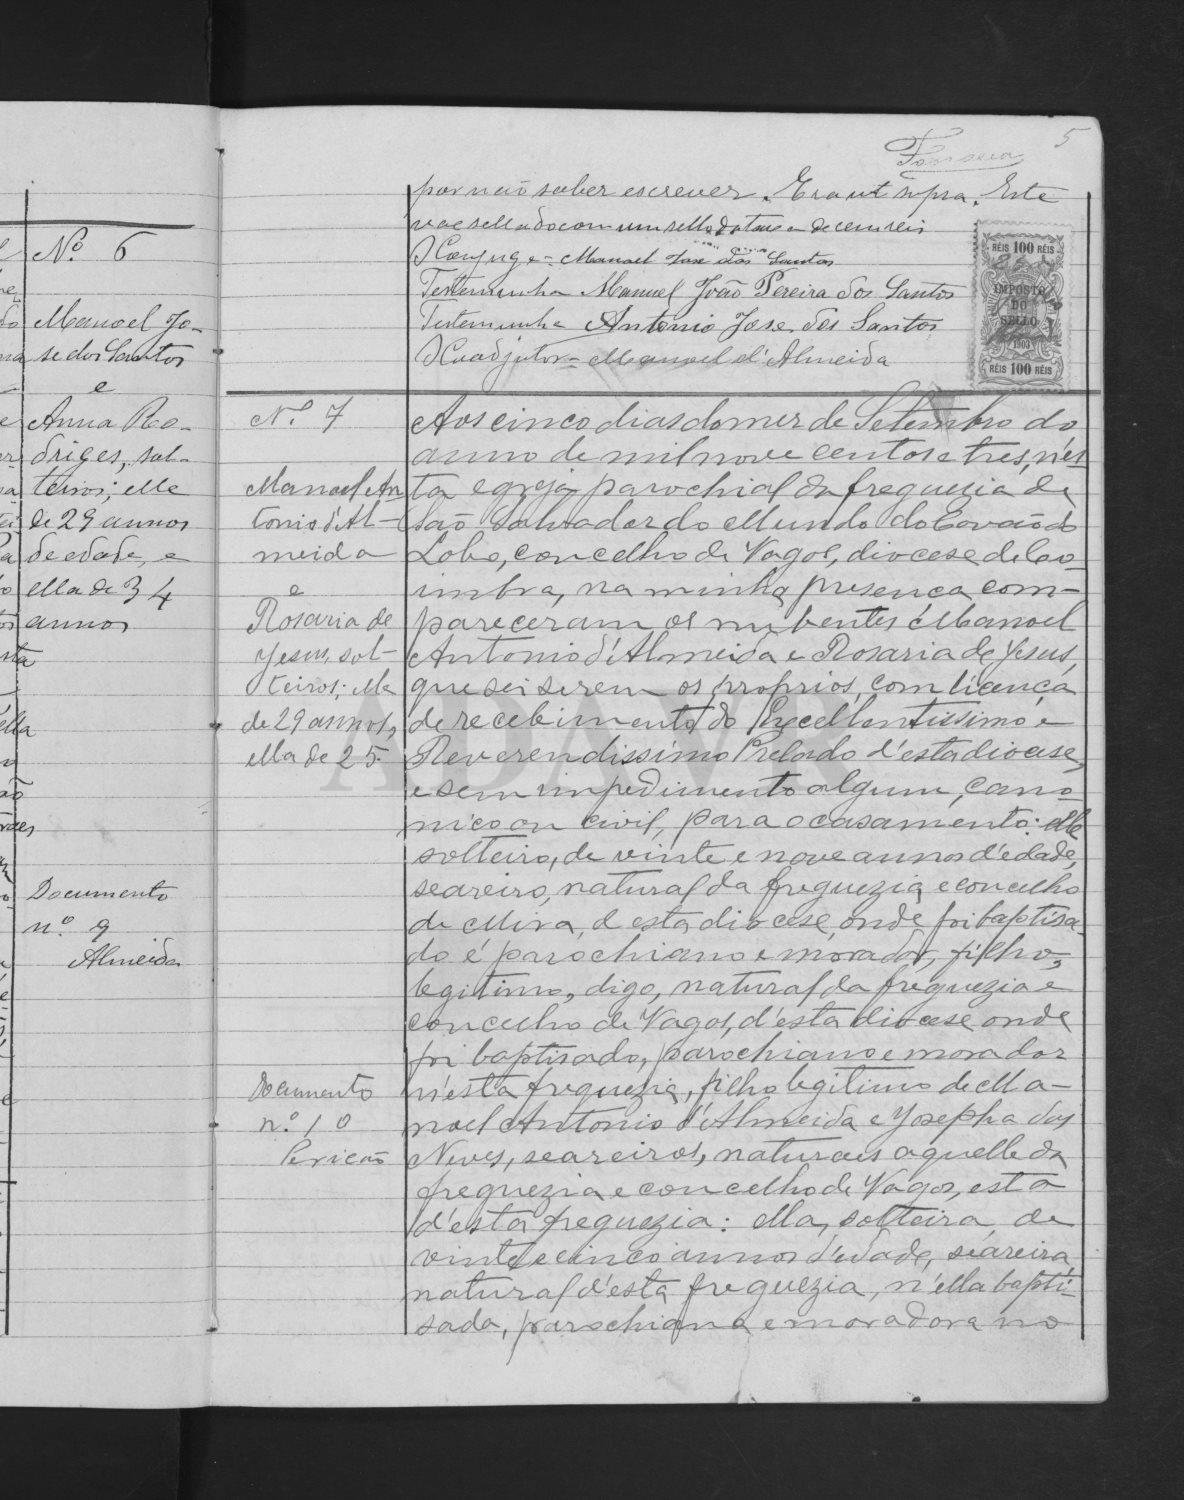 5
Fonseca
por não saber escrever. Era ut supra. Este
vae sellado com um sello da taxa de cem reis
O Conjuge = Manoel Jose dos Santos
Testemunha Manuel João Pereira dos Santos
Testemunha Antonio Jose dos Santos
O Coadjutor = Manoel d'Almeida
RÉIS 100 RÉIS
IMPOSTO
DO
SELLO
1903
RÉIS 100 RÉIS
Nº 6
Manoel Jo-
se dos Santos
e
Anna Ro-
driges, sol-
teiros; elle
de 29 annos
de edade, e
ella de 34
annos
Documento
nº 9
Almeida
Nº 7
Manoel An
tonio d'Al-
meida
e
Rosaria de
Jesus, sol-
teiros; elle
de 29 annos,
ella de 25.
Documento
nº 10
Aos cinco dias do mez de Setembro do
anno de mil nove centos e tres, n'es
ta egreja parochial da freguezia de
São Salvador do Mundo do Covão do
Lobo, concelho de Vagos, diocese de Co-
imbra, na minha presença com-
pareceram os nubentes Manoel
Antonio d'Almeida e Rosaria de Jesus,
que sei serem os proprios, com licença
de recebimento do Excellentissimo e
Reverendissimo Prelado d'esta diocese,
e sem impedimento algum, cano-
nico ou civil, para o casamento: elle
solteiro, de vinte e nove annos d'edade,
seareiro, natural da freguezia e concelho
de Mira, d'esta diocese, onde foi baptisa-
do é parochiano e morador, filho
legitimo, digo, natural da freguezia e
concelho de Vagos, d'esta diocese onde
foi baptisado, parochiano e morador
n'esta freguezia, filho legitimo de Ma-
noel Antonio d'Almeida e Josepha das
Neves, seareiros, naturaes aquelle da
freguezia e concelho de Vagos, esta
d'esta freguezia: ella, solteira, de
vinte e cinco annos d'edade, seareira,
natural d'esta freguezia, n'ella bapti-
sada, parochiana e moradora no
ADAVR